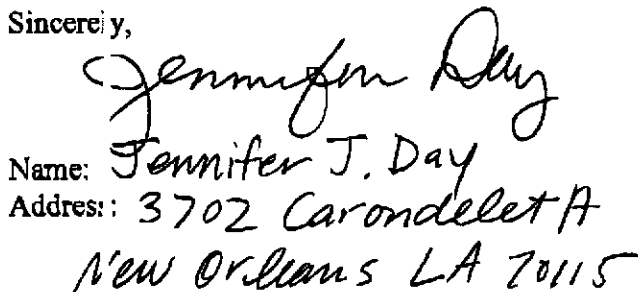 Sincerely,
Jennifer Day
Name: Jennifer J. Day
Address: 3702 Carondelet A
New Orleans LA 70115